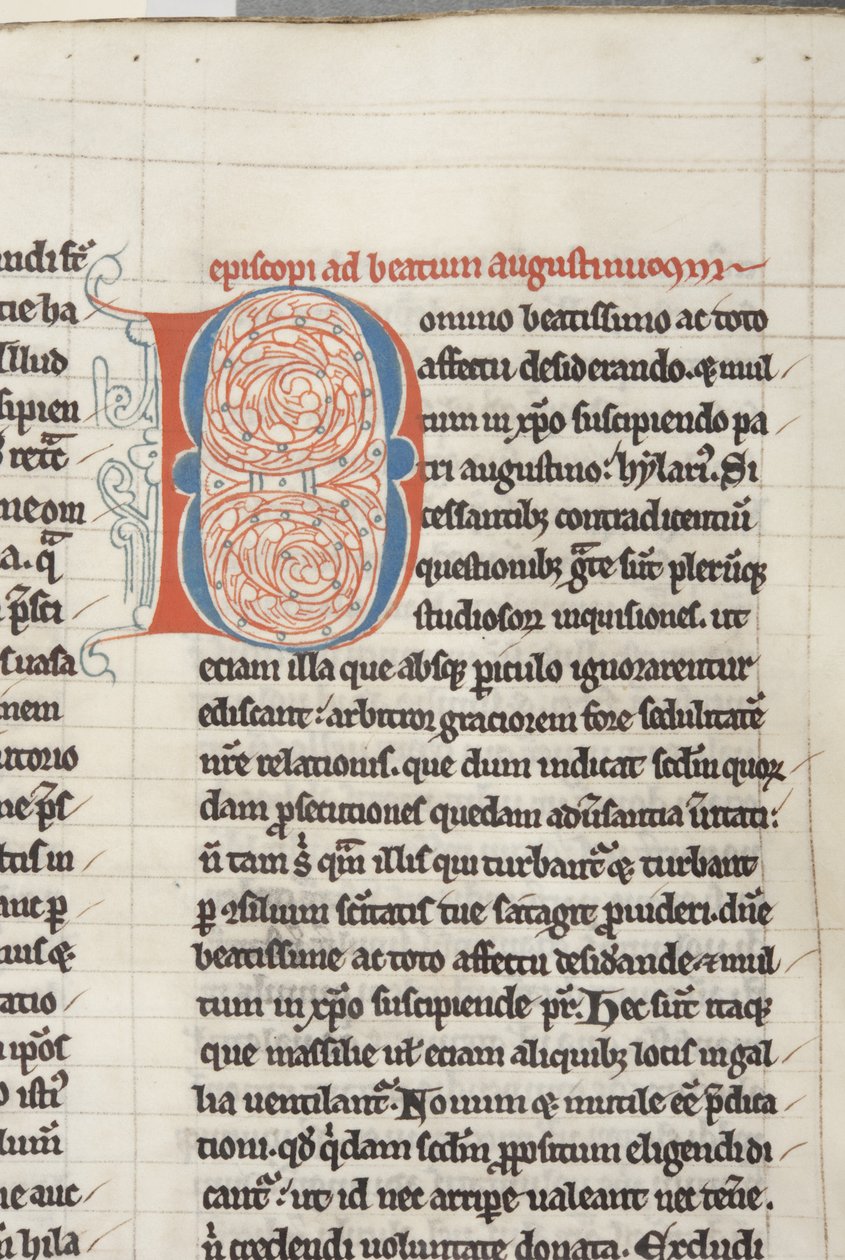 undi st̄
cie ha
Illud
sipien
retē
meom
a. qͣ
p̄sci
suasa
mem
utorio
ne p̄s
ctis in
anc ꝑ
uius &
tatio
ipōs
isti⁹
lum̄
ne auc
hila
episcopi ad beatum augustinum
Domino beatissimo ac toto
affectu desiderando. & mul
tum in xp̄o suscipiendo pa
tri augustino: hẏlari⁹. Si
cessantibꝫ contradicentiū
questionibꝫ g̃te sūt plerūqꝫ
studiosoꝝ inquisiones. ut
etiam illa que absqꝫ ꝑiculo ignorarentur
ediscant: arbitror graciorem fore sedulitatē
nr̄e relationis. que dum indicat scd̄m quoꝝ
dam ꝓsecutiones quedam adūsantia ūitati:
ñ tam s̉ qm̄ illis qui turbantᷣ & turbant
ꝑ ꝯsilium sc̄itatis tue satagit ꝓuideri. dn̄e
beatissime ac toto affectu desid̓ande ⁊ mul
tum in xp̄o suscipiende pr̄. Hec sūt itaqꝫ
que massilie ul̓ etiam aliquibꝫ locis in gal
lia uentilantᷣ. Nouum & inutile eē p̄dica
tioni. qđ qͥdam scd̄m ꝓpositum eligendi di
cantᷣ: ut id nec arripe ualeant nec ten̄e.
n̉ credendi uoluntate donata. Excludi